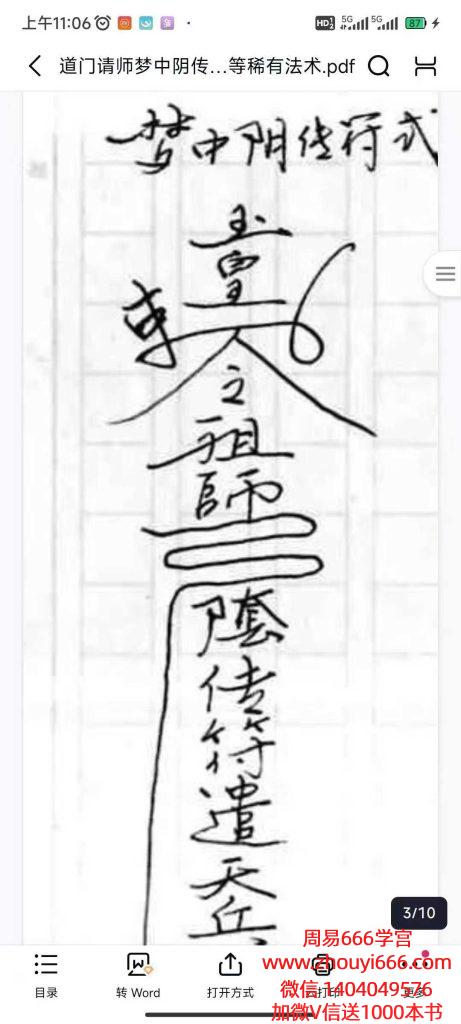 上午11:06
HD 5G 5G 87
道门请师梦中阴传...等稀有法术.pdf
梦中阴传符式
玉
皇
之
祖
師
传
符
遣
天
兵
3/10
目录
转 Word
打开方式
云打印
更多
周易666学宫
www.zhouyi666.com
微信:1404049576
加微V信送1000本书